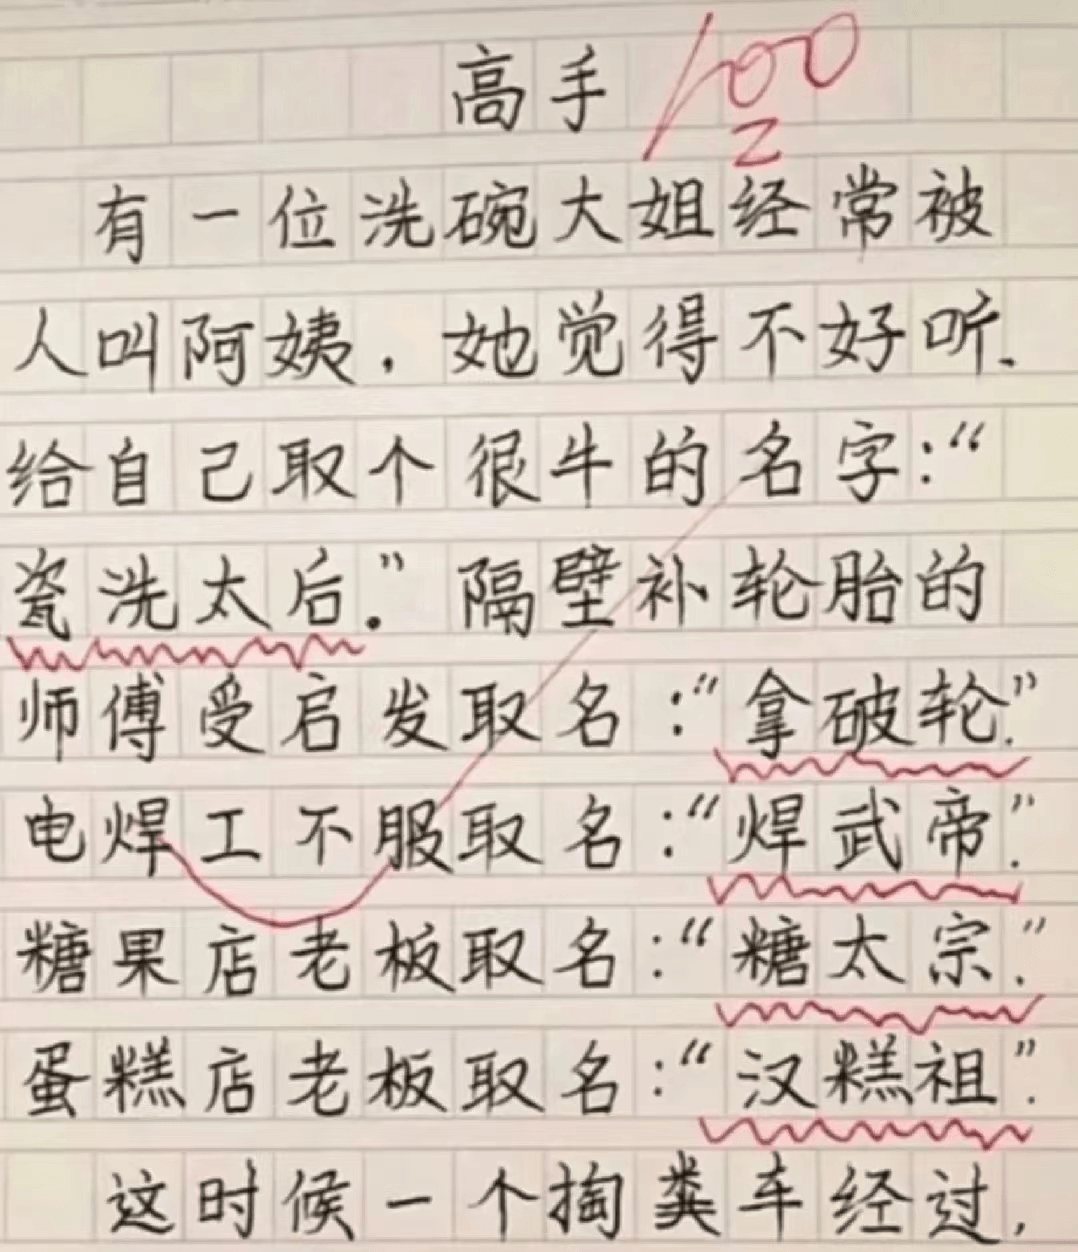 高手 100
有一位洗碗大姐经常被
人叫阿姨，她觉得不好听.
给自己取个很牛的名字:“
瓷洗太后.” 隔壁补轮胎的
师傅受启发取名:“拿破轮.”
电焊工不服取名:“焊武帝.”
糖果店老板取名:“糖太宗.”
蛋糕店老板取名:“汉糕祖”.
这时候一个掏粪车经过,